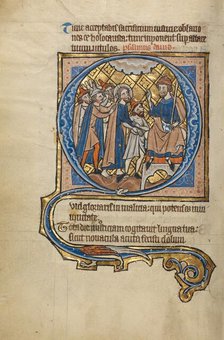 Tunc acceptabis sacrificium iusticie oblatio
nes et holocausta: tunc imponent sup altare
tuum uitulos. psalmus dauid
Quid gloriaris in malicia: qui potens es in
iniquitate
Tota die iniusticiam cogitauit lingua tua:
sicut nouacula acuta fecisti dolum.